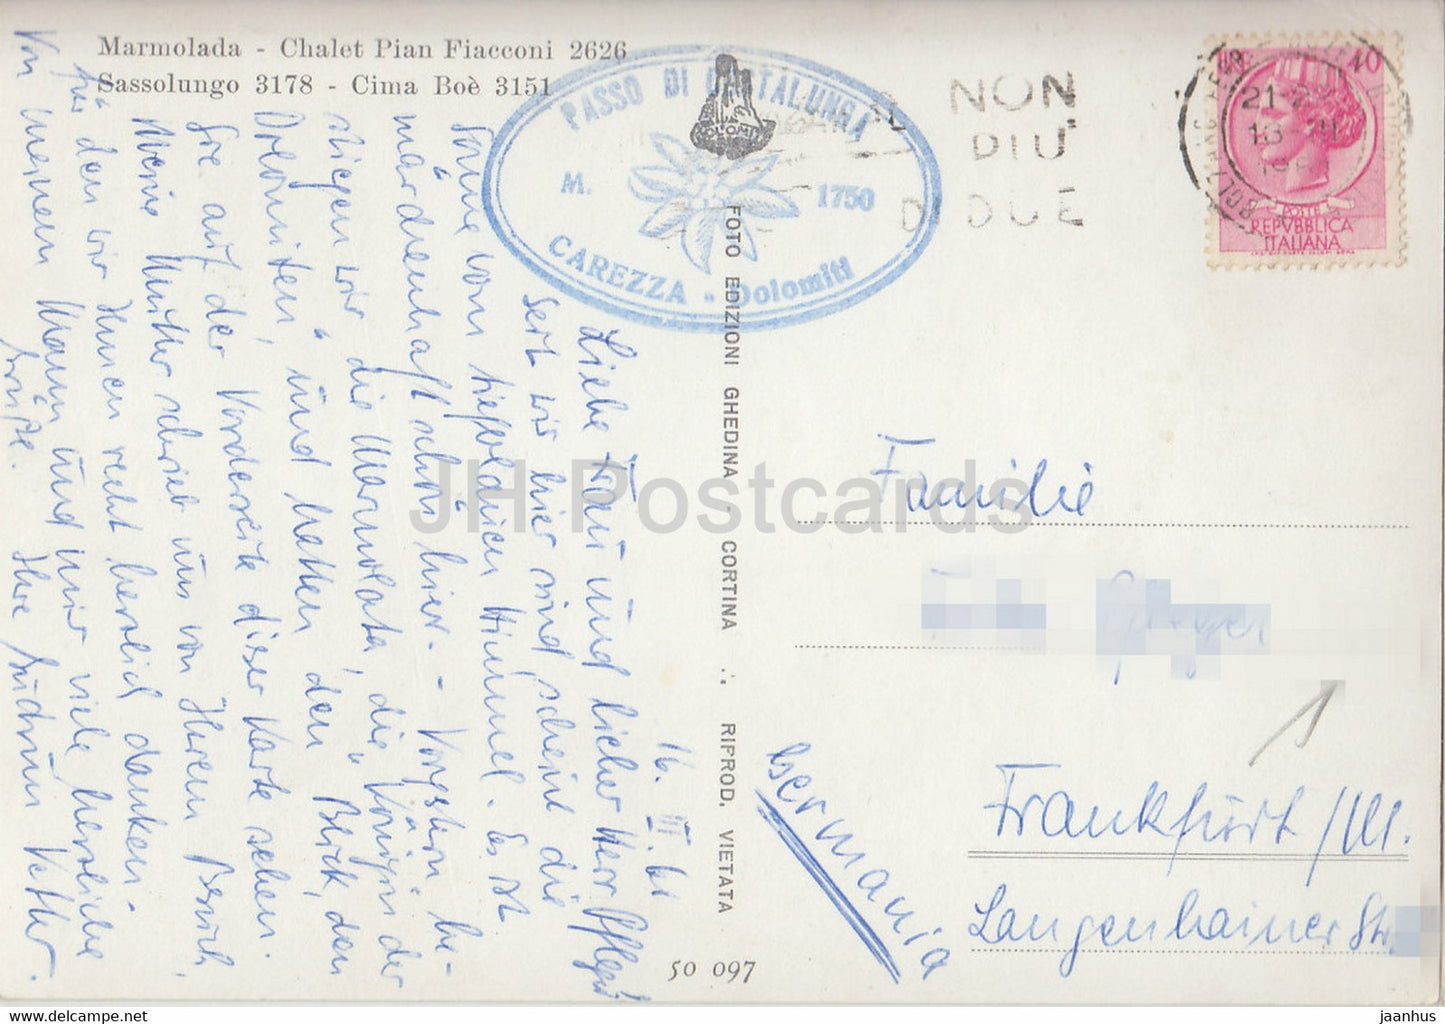 Marmolada - Chalet Pian Fiacconi 2626
Sassolungo 3178 - Cima Boè 3151
PASSO DI COSTALUNGA
M. 1750
CAREZZA - Dolomiti
DOLOMITI
NON
PIU'
DI DUE
21-2
18-
BOLZANO
40
POSTE
REPVBBLICA
ITALIANA
FOTO EDIZIONI GHEDINA - CORTINA ∴ RIPROD. VIETATA
50 097
16. III. 61
Liebe Frau und lieber Herr
Seit wir hier sind, scheint die
Sonne vom tiefblauen Himmel. Es ist
märchenhaft schön hier. - Vorgestern be-
stiegen wir die Marmolata, die "Königin der
Dolomiten," und hatten den Blick, den
Sie auf der Vorderseite dieser Karte sehen.
Meine Mutter schrieb uns von Ihrem Besuch,
für den wir Ihnen recht herzlich danken.
Von meinem Mann und mir viele herzliche
Grüße. Ihre
Familie
Frankfurt/M.
Langenhainer Str.
Germania
1
JH Postcards
HipPostcard.com
jaanhus